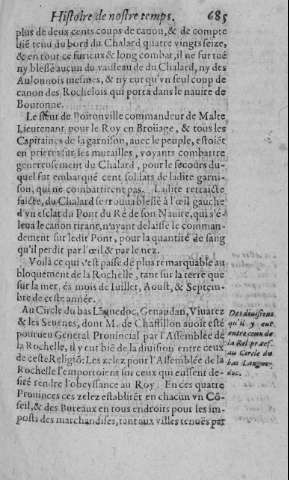 Histoire de nostre temps. 685
plus de deux cents coups de canon, & de compte
fié tenu du bord du Chalard quatre vingts seize,
& en tout ce furieux & long combat, il ne fut tué
ny blessé aucun du vaisseau du Chalard, ny des
Aulonnois mesmes, & n'y eut qu'vn seul coup de
canon des Rochelois qui porta dans le nauire de
Boutonne.
Le sieur de Boitonville commandeur de Malte
Lieutenant pour le Roy en Broüage, & tous les
Capitaines de la garnison, auec le peuple, estoiét
en priere sur les murailles, voyants combattre
genereusement du Chalard, pour le secours du-
quel fut embarqué cent soldats de ladite garni-
son, qui ne combattirent pas. Ladite retraicte
faicte, du Chalard se trouua blessé à l'œil gauche
d'vn esclat du Pont du Ré de son Nauire, qui s'é-
leua le canon tirant, n'ayant delaissé le comman-
dement sur ledit Pont, pour la quantité de sang
qu'il perdit par l'œil & par le nez.
Voila ce qui s'est passé de plus remarquable au
bloquement de la Rochelle, tant sur la terre que
sur la mer, és mois de Iuillet, Aoust, & Septem-
bre de ceste année.
Au Circle du bas Lãguedoc, Geuaudan, Viuarez
& les Seuenes, dont M. de Chastillon auoit esté
pourueu General Prouincial par l'Assemblée de
la Rochelle, il y eut bié de la diuision entre ceux
de ceste Religiõ: Les zelez pour l'Assemblée de la
Rochelle l'emporterent sur ceux qui eussent de-
siré rendre l'obeyssance au Roy. En ces quatre
Prouinces ces zelez establirét en chacun vn Cõ-
seil, & des Bureaux en tous endroits pour les im-
posts des marchandises, tant aux villes tenuës par
Des diuisions
qu'il y eut
entre ceux de
la Rel. pret.
au Cercle du
bas Langue-
doc.